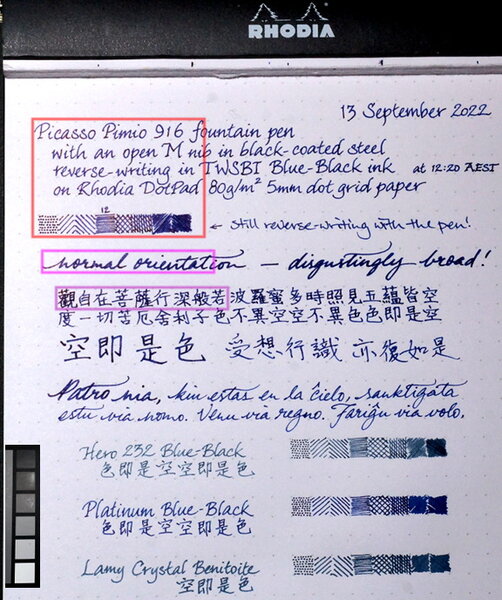 RHODIA
13 September 2022
Picasso Pimio 916 fountain pen
with an open M nib in black-coated steel
reverse-writing in TWSBI Blue-Black ink at 12:20 AEST
on Rhodia DotPad 80g/m² 5mm dot grid paper
12
← still reverse-writing with the pen!
normal orientation — disgustingly broad!
觀自在菩薩行深般若波羅蜜多時照見五蘊皆空
度一切苦厄舍利子色不異空空不異色色即是空
空即是色 受想行識 亦復如是
Patro nia, kiu estas en la ĉielo, sanktigata
estu via nomo. Venu via regno. Fariĝu via volo,
Hero 232 Blue-Black
色即是空空即是色
Platinum Blue-Black
色即是空空即是色
Lamy Crystal Benitoite
空即是色